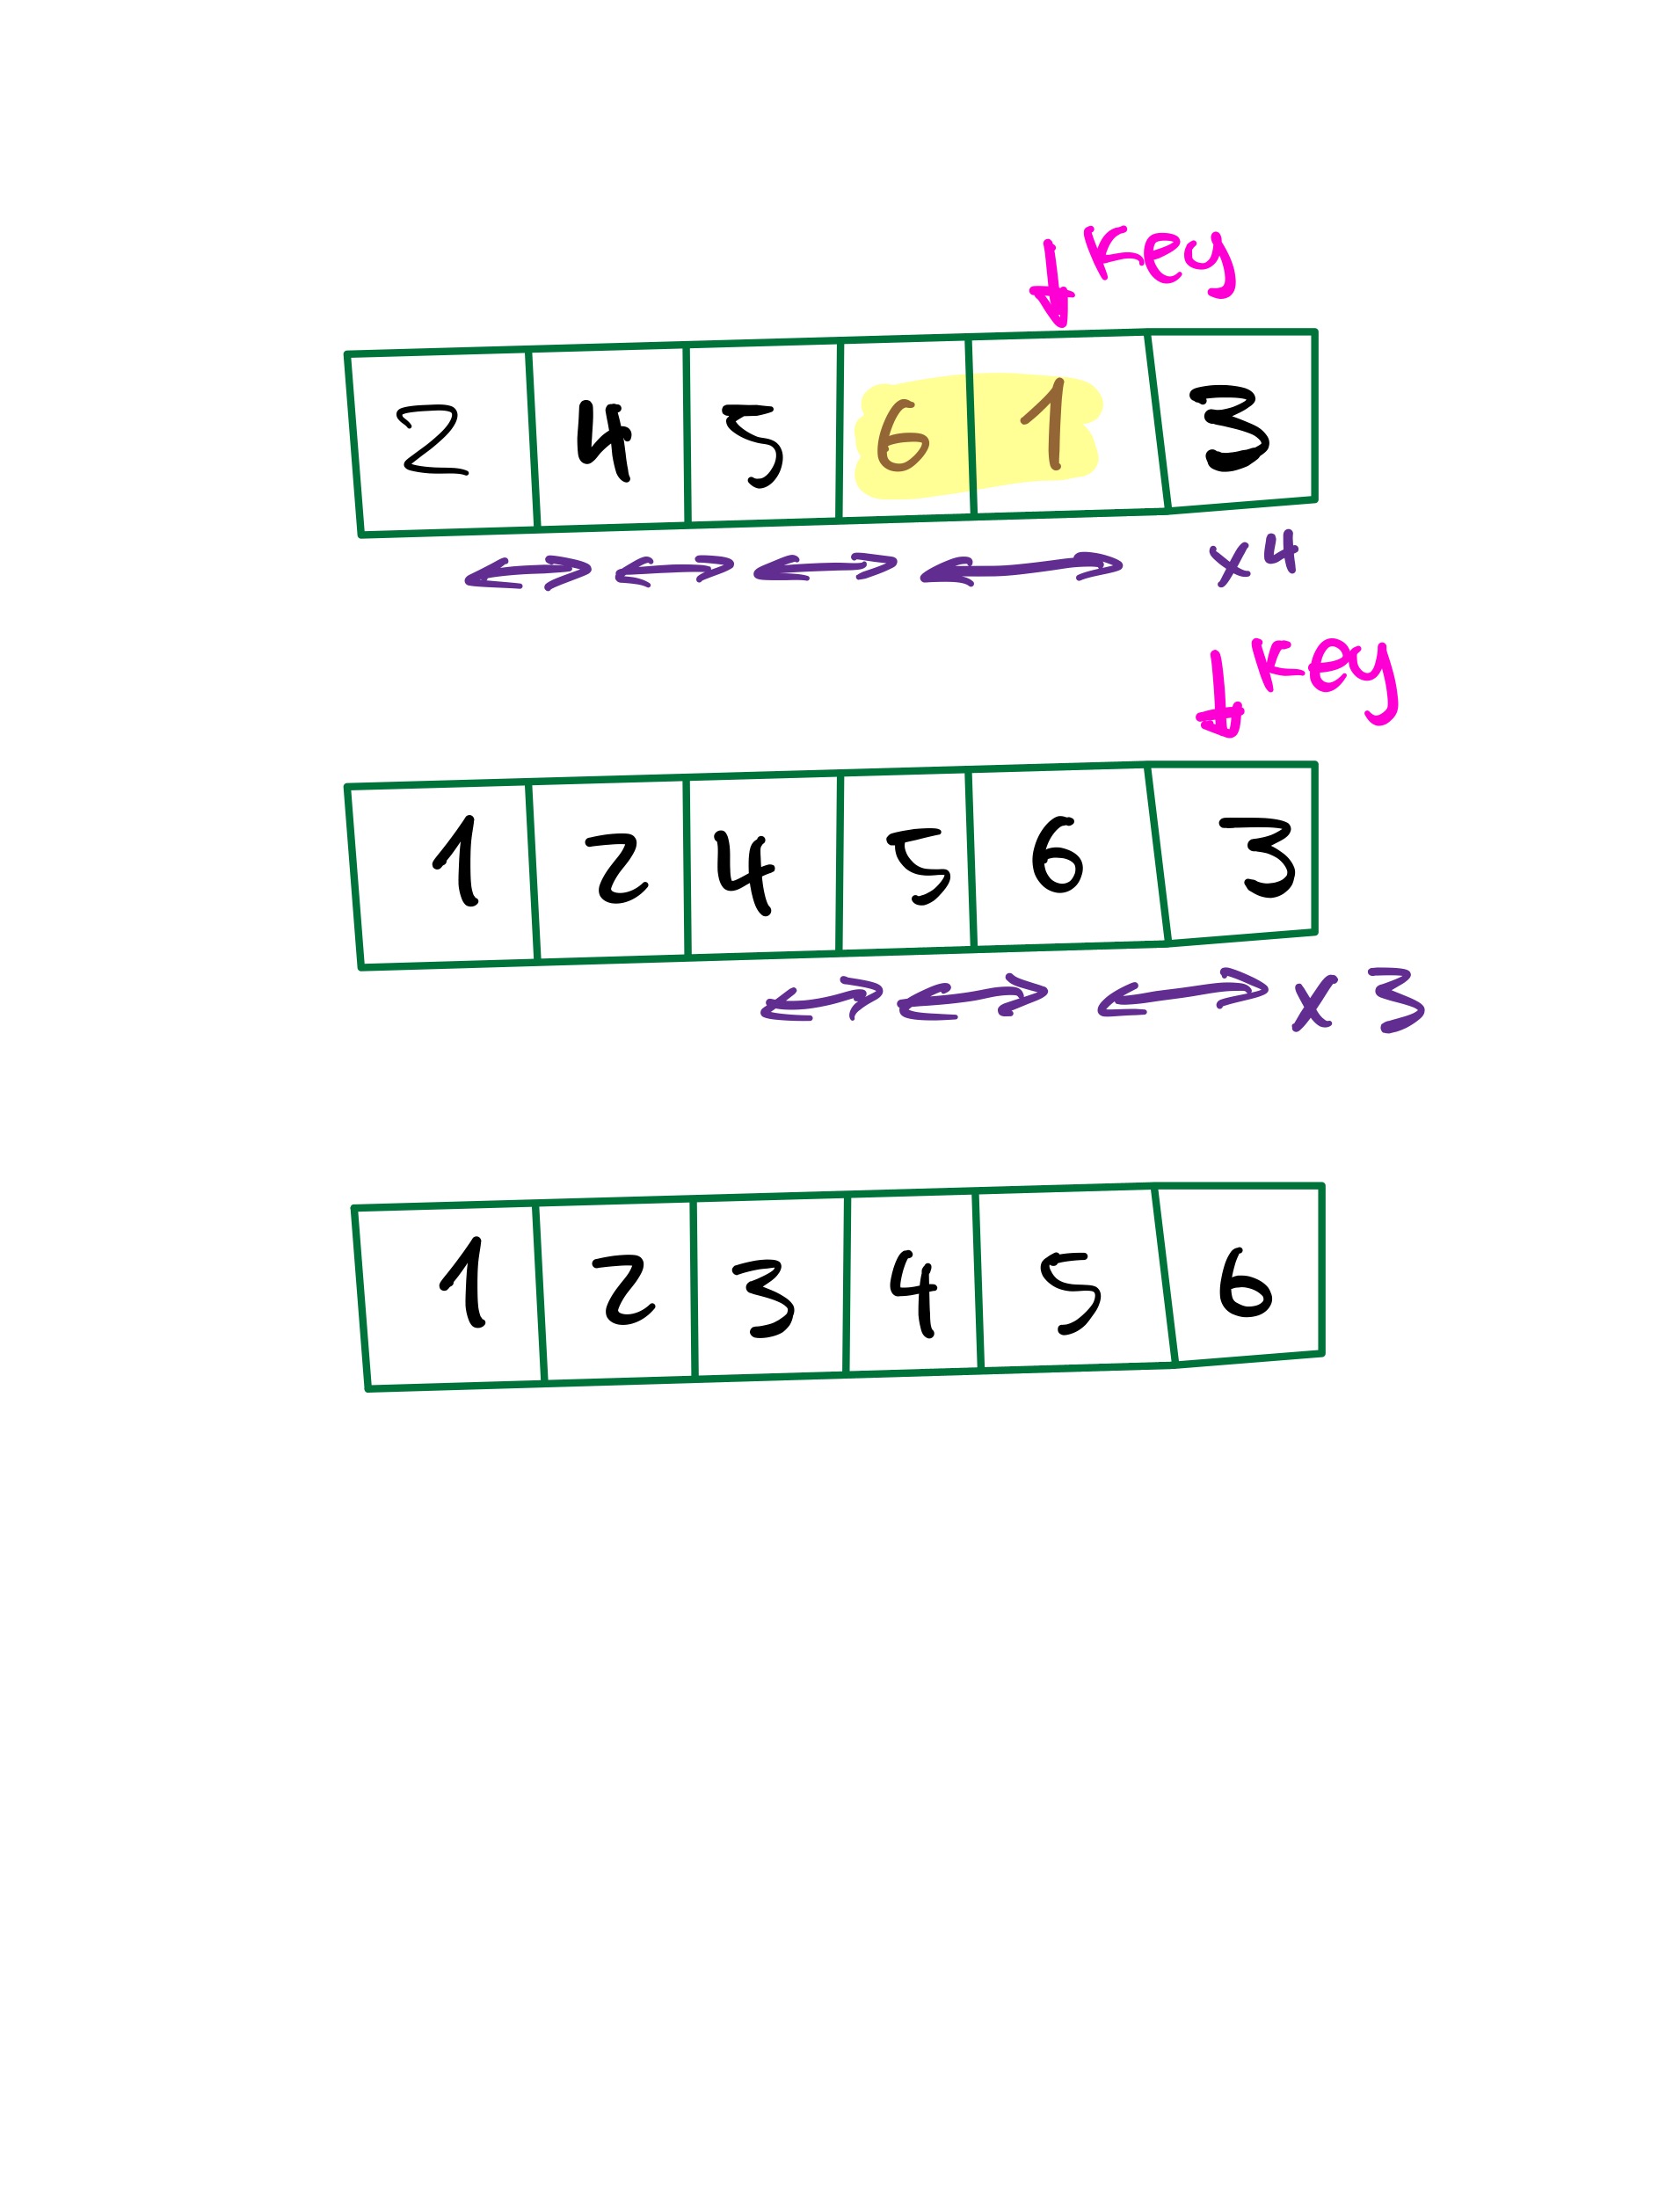 Key
2 4 5 6 1 3
x4
Key
1 2 4 5 6 3
x 3
1 2 3 4 5 6